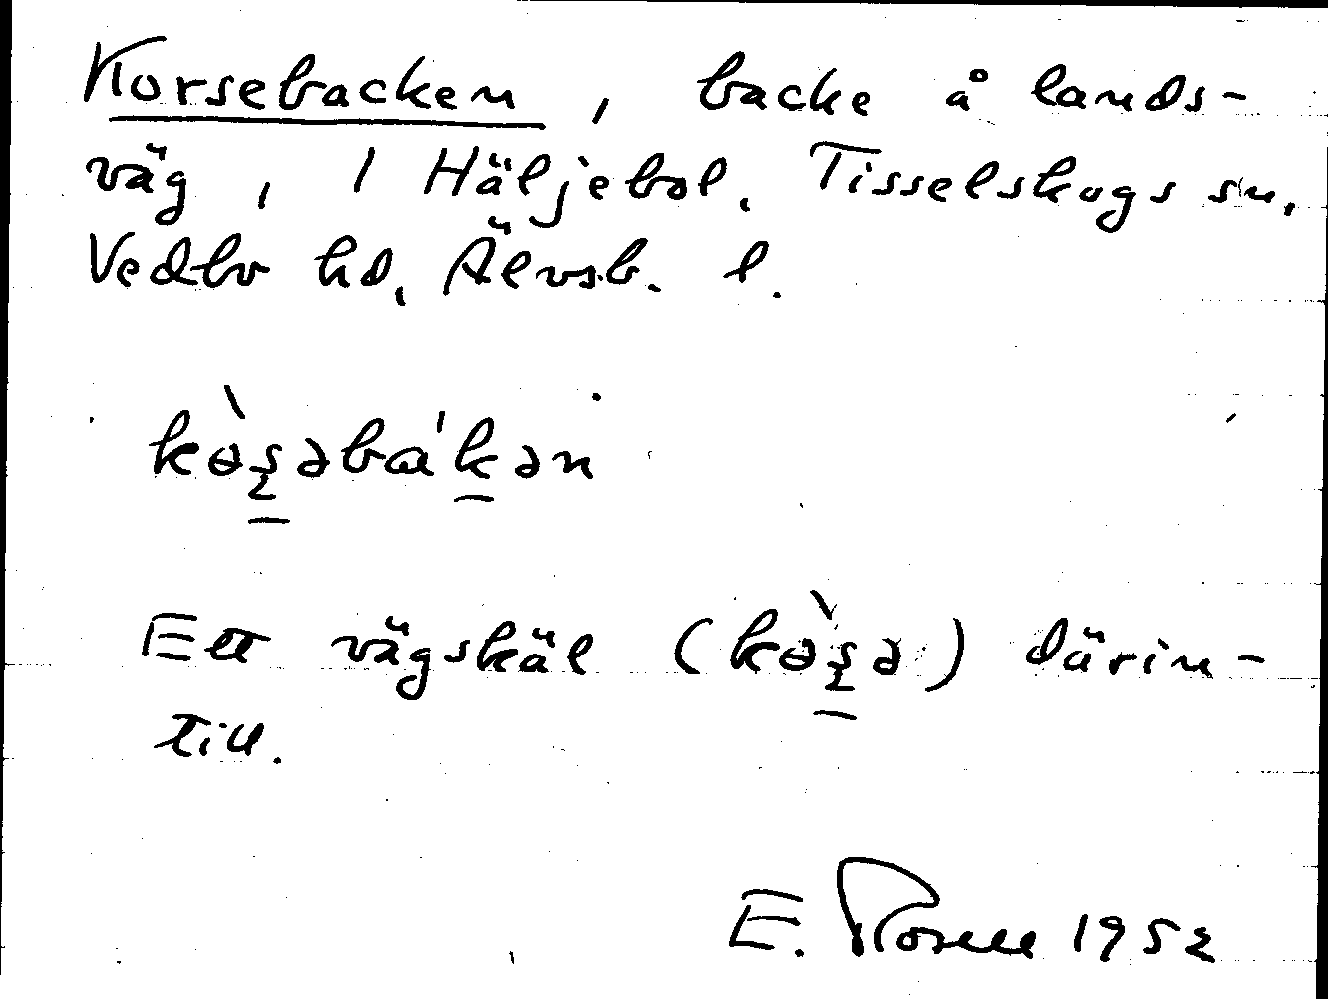 Korsebacken, backe å lands-
väg, 1 Häljebol. Tisselskogs sn,
Vedbo hd, Älvsb. l.
kɵ̀ʂəbaˈkən
Ett vägskäl (kɵ̀ʂə) därin-
till.
E. Rosell 1952